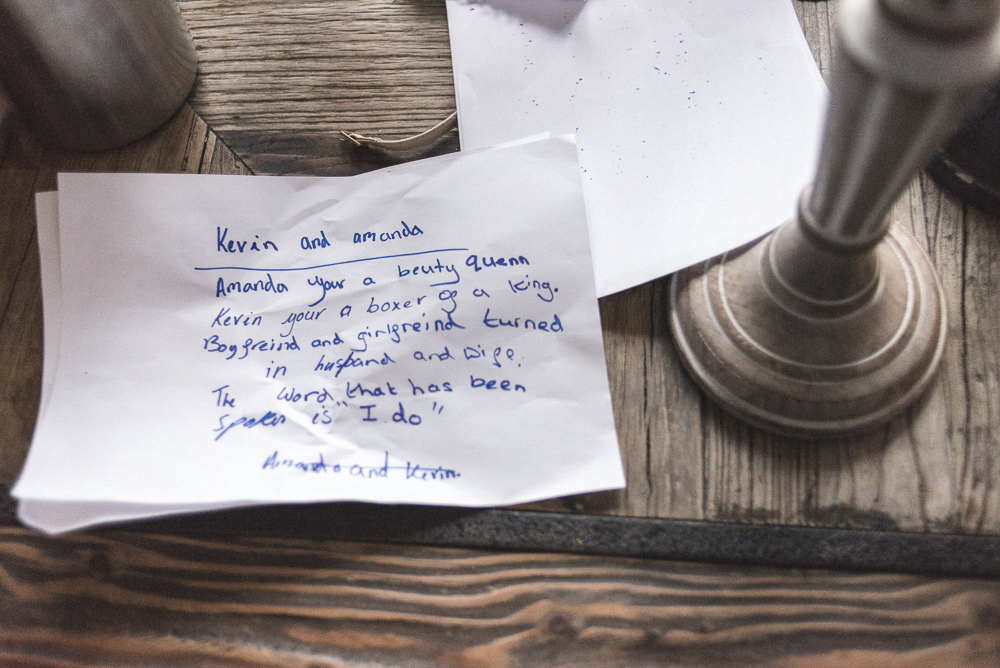 Kevin and amanda
Amanda your a beuty quenn
Kevin your a boxer of a king.
Boyfreind and girlfreind turned
in husband and wife.
The word that has been
spoken is "I do"
Amanda and Kevin.